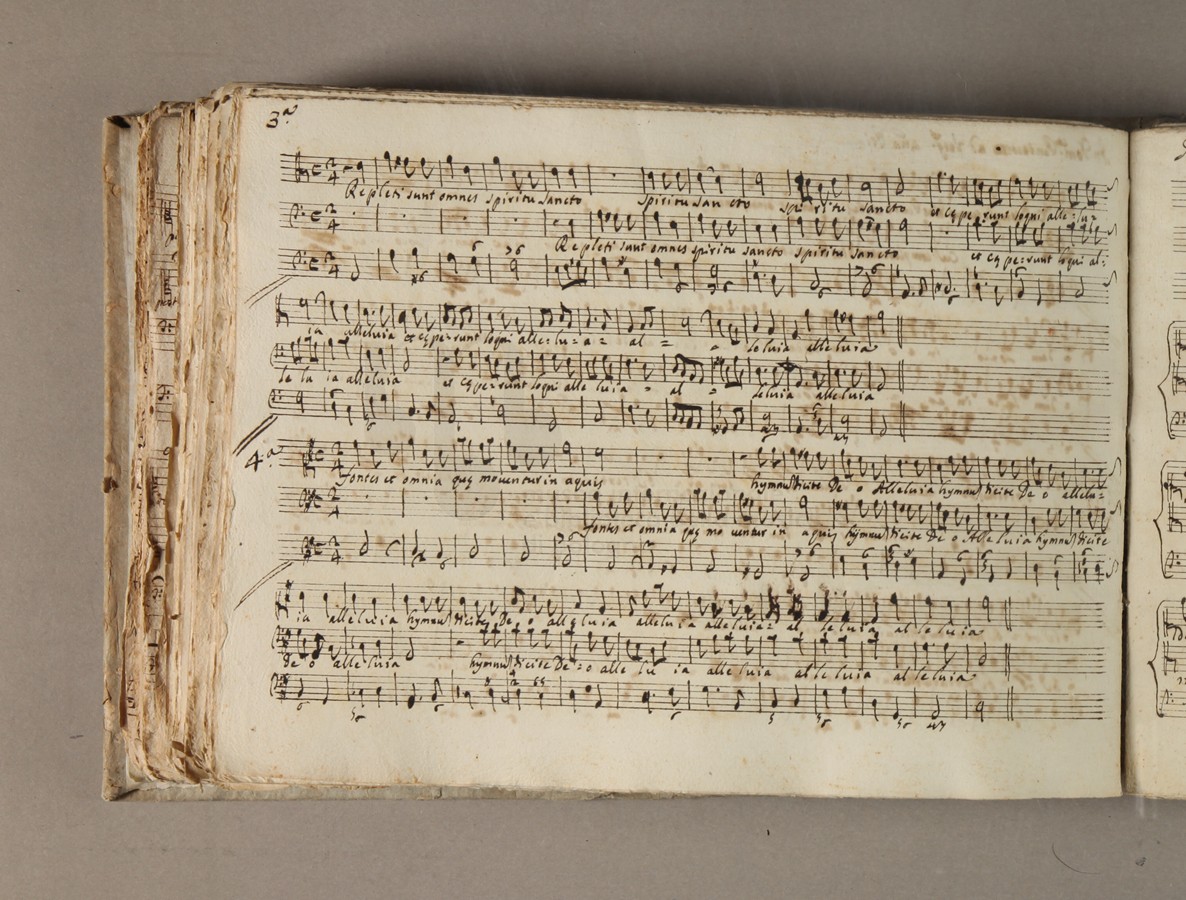 3.a
Repleti sunt omnes spiritu sancto spiritu san cto spi ritu sancto et cępe=runt loqui alle=lu=
Repleti sunt omnes spiritu sancto spiritu sancto et cępe=runt loqui al=
ia alleluia et cępe=runt loqui alle=lu=a= al = = leluia alleluia
le lu ia alleluia et cępe=runt loqui alle luia = al = leluia alleluia
4.a
fontes et omnia quę moventur in aquis hymnu dicite De o Alleluia hymnu dicite De o allelu=
fontes et omnia quę mo ventur in aquis hymnu dicite De o Alle luia hymnu dicite
ia alleluia hymnu dicite De o alleluia alleluia= al leluia alleluia
de o alleluia hymnu dicite De=o alle lu ia alleluia alleluia alleluia